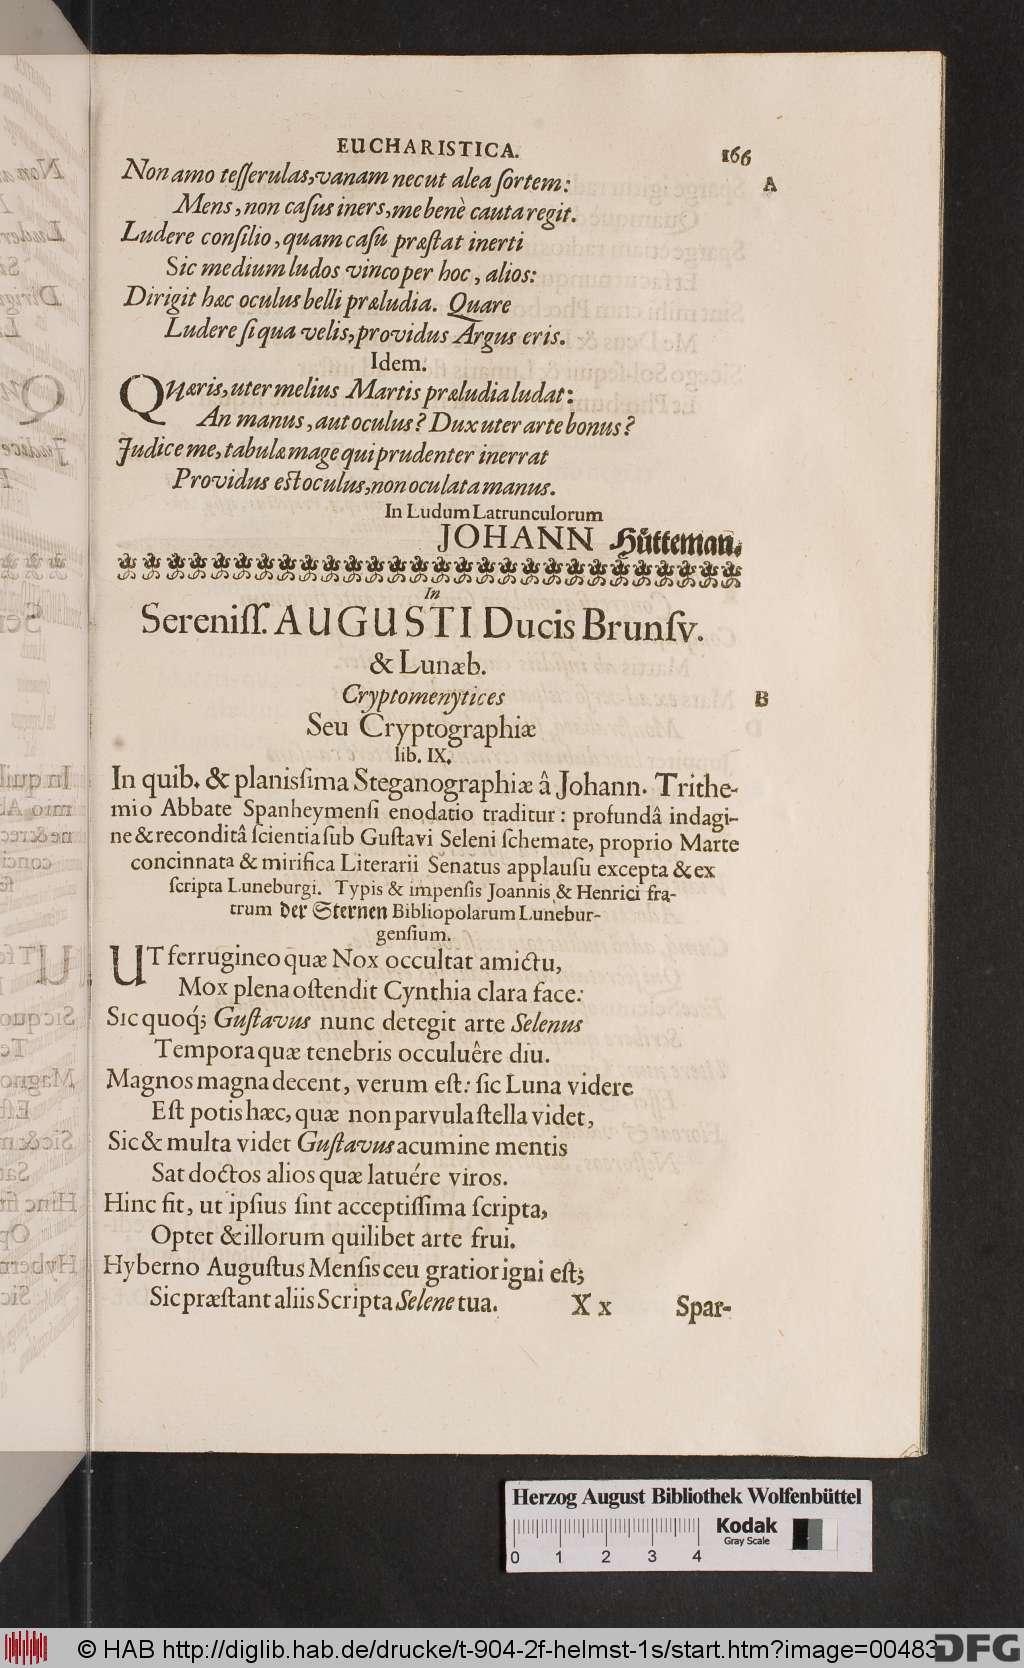 EUCHARISTICA. 166
Non amo teſſerulas, vanam nec ut alea ſortem: A
Mens, non caſus iners, me benè cauta regit.
Ludere conſilio, quam caſu præſtat inerti
Sic medium ludos vinco per hoc, alios:
Dirigit hæc oculus belli præludia. Quare
Ludere ſi qua velis, providus Argus eris.
Idem.
QUæris, uter melius Martis præludia ludat:
An manus, aut oculus? Dux uter arte bonus?
Judice me, tabulæ mage qui prudenter inerrat
Providus eſt oculus, non oculata manus.
In Ludum Latrunculorum
JOHANN Hütteman.
In
Sereniſſ. AUGUSTI Ducis Brunſv.
& Lunæb.
Cryptomenytices B
Seu Cryptographiæ
lib. IX.
In quib. & planisſima Steganographiæ â Johann. Trithe-
mio Abbate Spanheymenſi enodatio traditur: profundâ indagi-
ne & reconditâ ſcientia ſub Guſtavi Seleni ſchemate, proprio Marte
concinnata & mirifica Literarii Senatus applauſu excepta & ex
ſcripta Luneburgi. Typis & impenſis Joannis & Henrici fra-
trum der Sternen Bibliopolarum Lunebur-
genſium.
UT ferrugineo quæ Nox occultat amictu,
Mox plena oſtendit Cynthia clara face:
Sic quoq́; Guſtavus nunc detegit arte Selenus
Tempora quæ tenebris occuluêre diu.
Magnos magna decent, verum eſt: ſic Luna videre
Eſt potis hæc, quæ non parvula ſtella videt,
Sic & multa videt Guſtavus acumine mentis
Sat doctos alios quæ latuére viros.
Hinc fit, ut ipſius ſint acceptiſſima ſcripta,
Optet & illorum quilibet arte frui.
Hyberno Auguſtus Menſis ceu gratior igni eſt;
Sic præſtant aliis Scripta Selene tua. X x Spar-
Herzog August Bibliothek Wolfenbüttel
0 1 2 3 4 Kodak
Gray Scale
© HAB http://diglib.hab.de/drucke/t-904-2f-helmst-1s/start.htm?image=00483 DFG